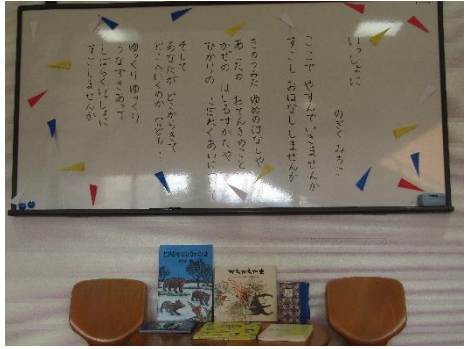 いっしょに
みちこ
ここで やすんでいきませんか
すこし おはなし しませんか
きのうみた ゆめのはなしや
あしたの おてんきのこと
かぜの はしるすがたや
ひかりの こぼれぐあいについて
そして
あなたが どこからきて
どこへいくのか などを…
ゆっくり ゆっくり
うなずきあって
しばらくいっしょに
すごしませんか